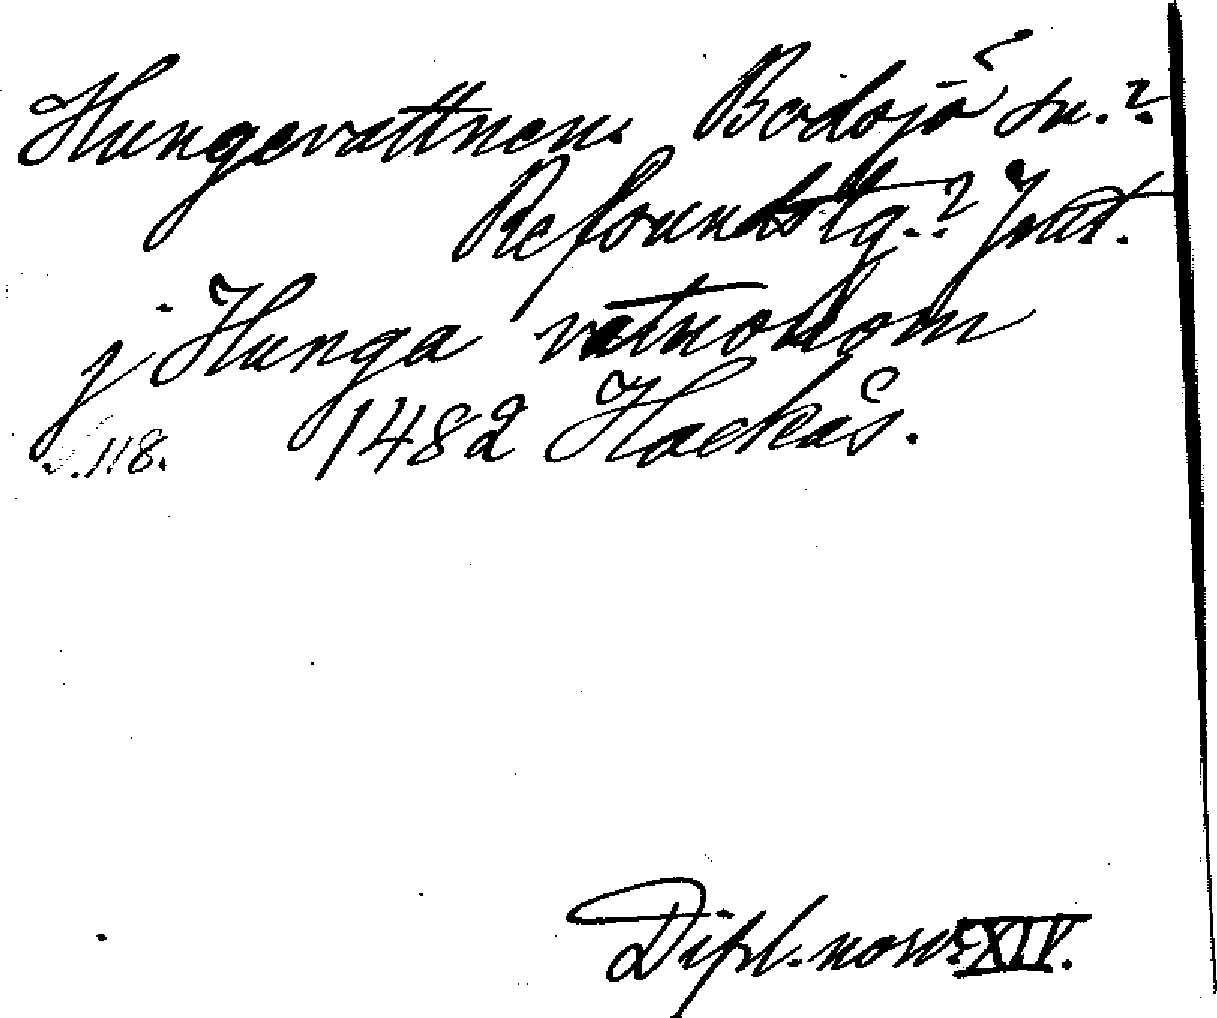 Hungevattnen. Bodsjö sn.?
Refsunds tlg.? Jmt.
j Hunga vatnomom
S. 118. 1482 Hackås.
Dipl. norv. XIV.